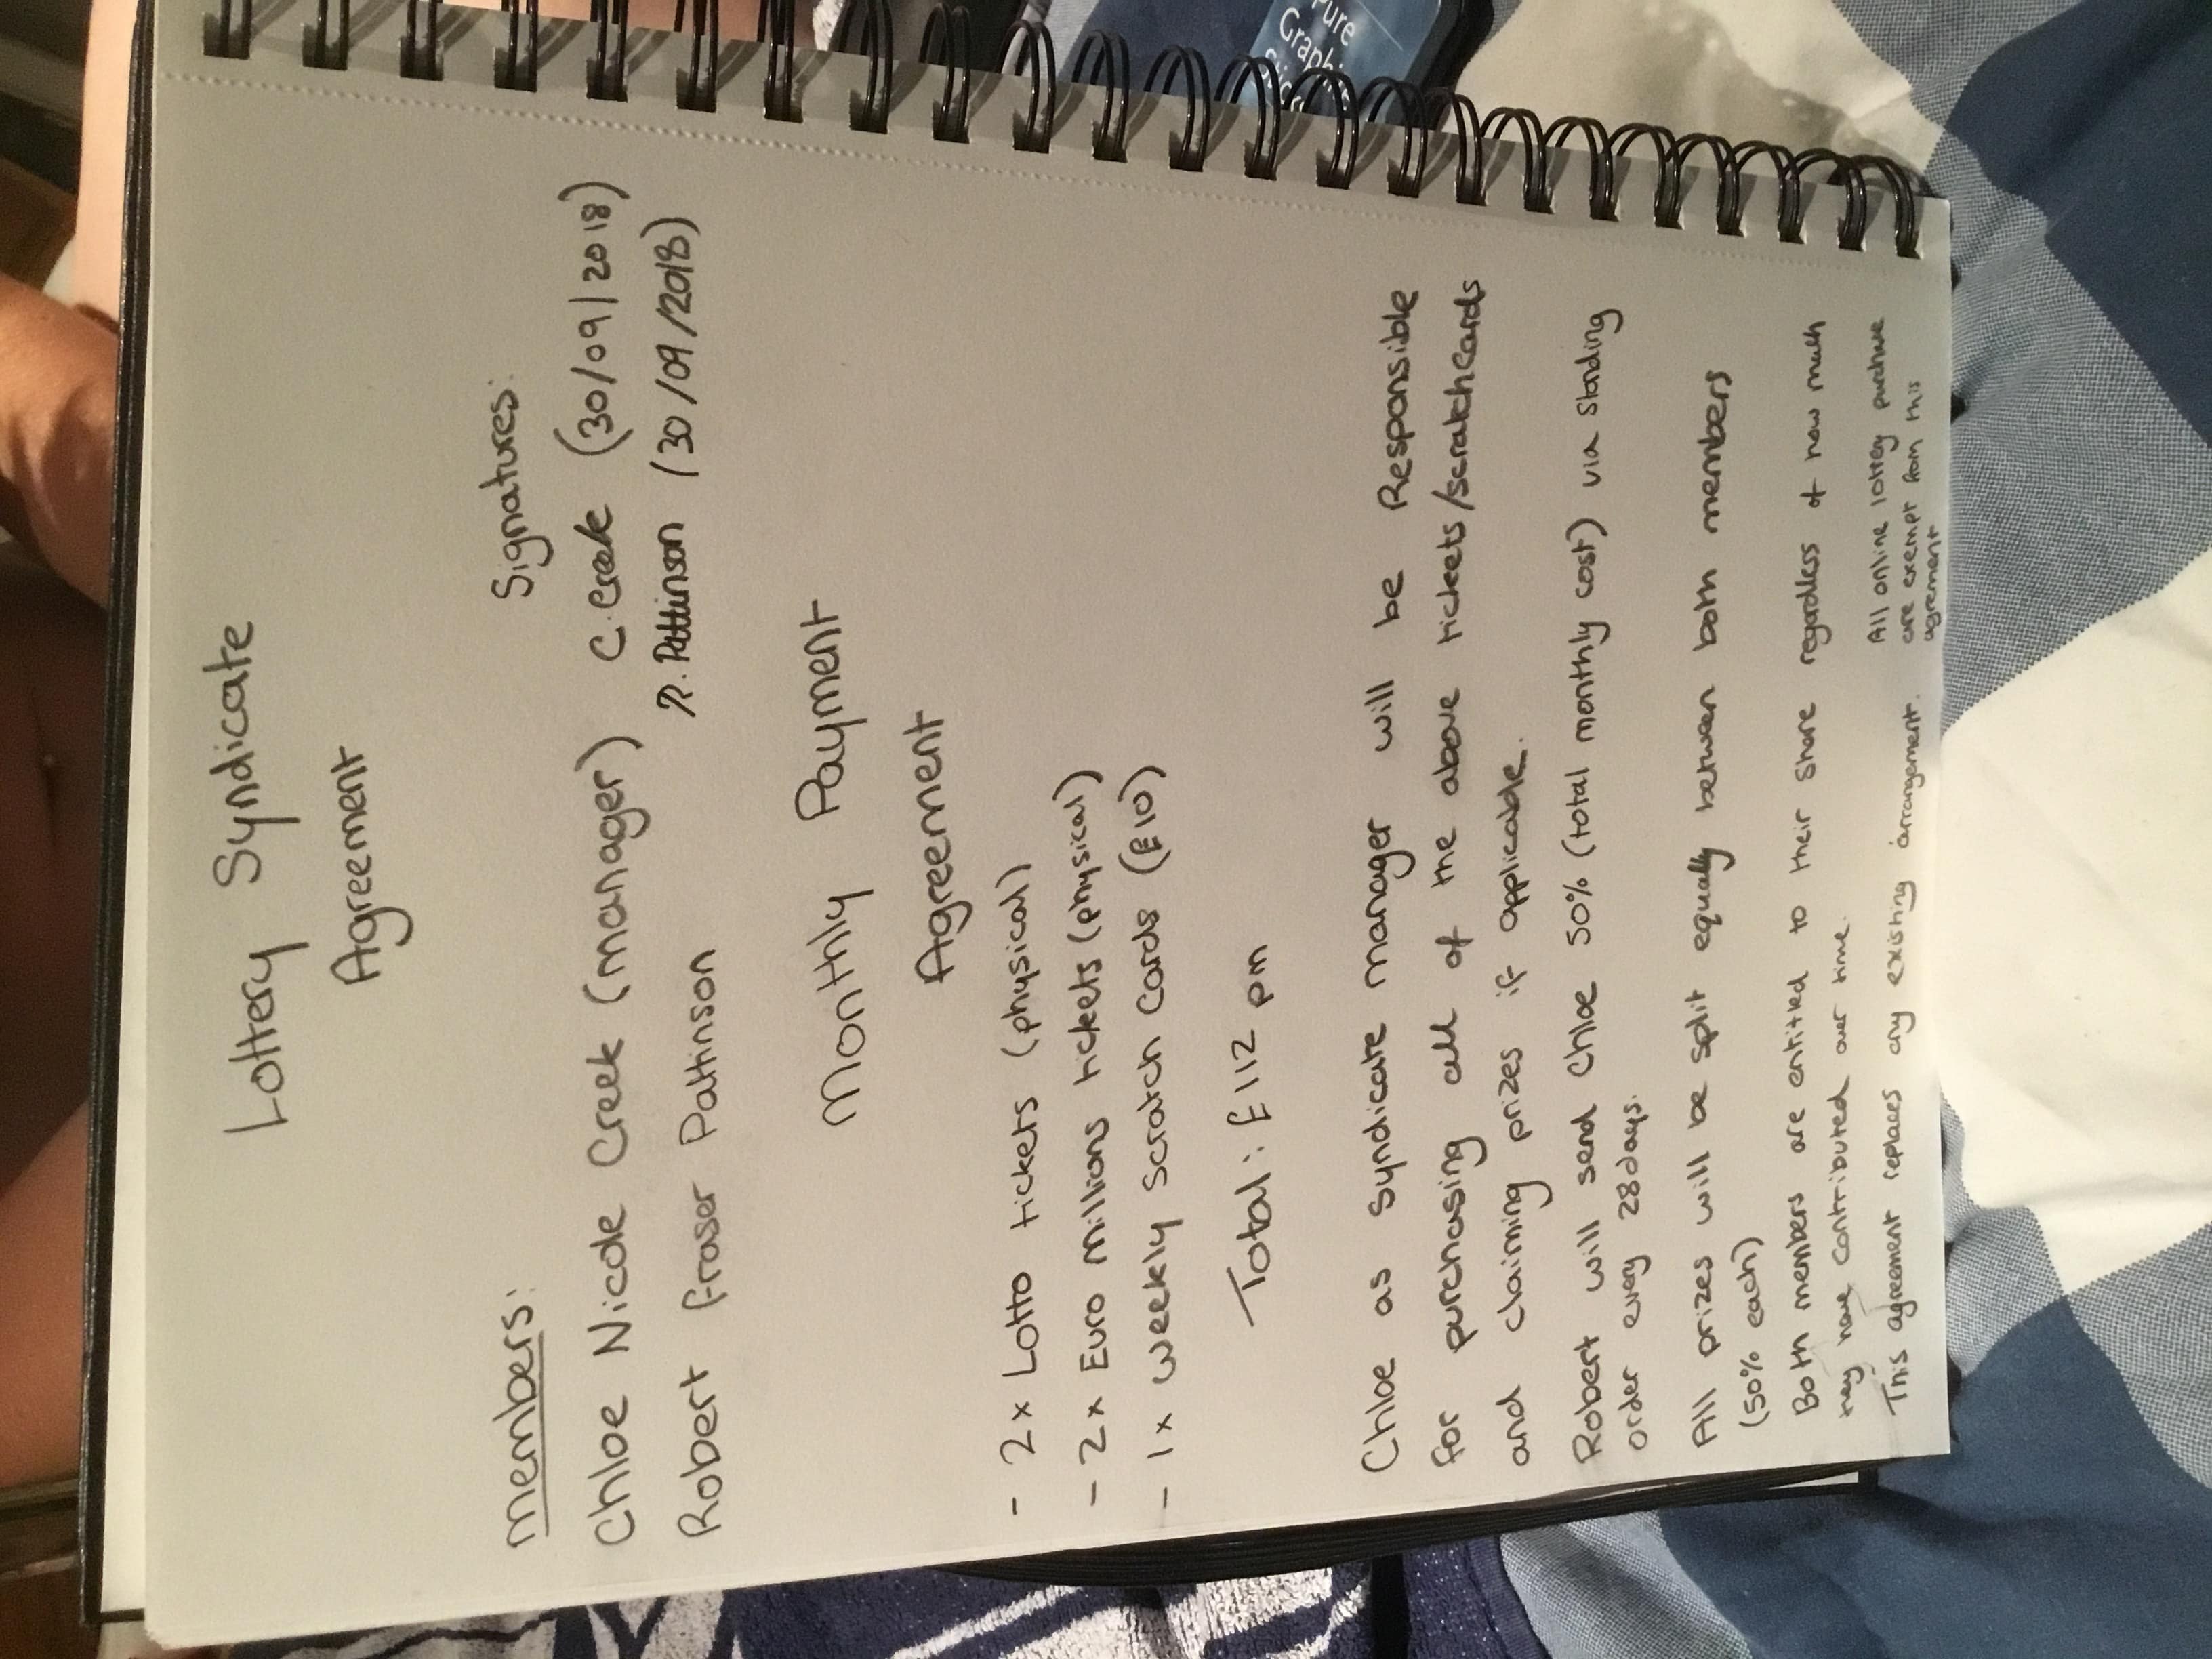 Lottery Syndicate
Agreement
members:
Signatures:
Chloe Nicole Creek (manager) C. Creek (30/09/2018)
Robert Fraser Pattinson R. Pattinson (30/09/2018)
Monthly Payment
Agreement
- 2x Lotto tickets (physical)
- 2x Euro millions tickets (physical)
- 1x weekly scratch cards (£10)
Total: £112 pm
Chloe as syndicate manager will be Responsible
for purchasing all of the above tickets/scratchcards
and claiming prizes if applicable.
Robert will send Chloe 50% (total monthly cost) via standing
order every 28 days.
All prizes will be split equally between both members
(50% each)
Both members are entitled to their share regardless of how much
may have contributed over time.
This agreement replaces any existing arrangement.
All online lottery purchase
are exempt from this
agreement
Pure
Graphi